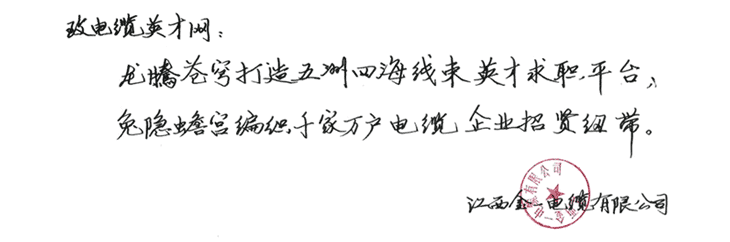 致电缆英才网：
龙腾苍穹打造五洲四海线束英才求职平台、
兔隐蟾宫编织千家万户电缆企业招贤纽带。
江西金一电缆有限公司